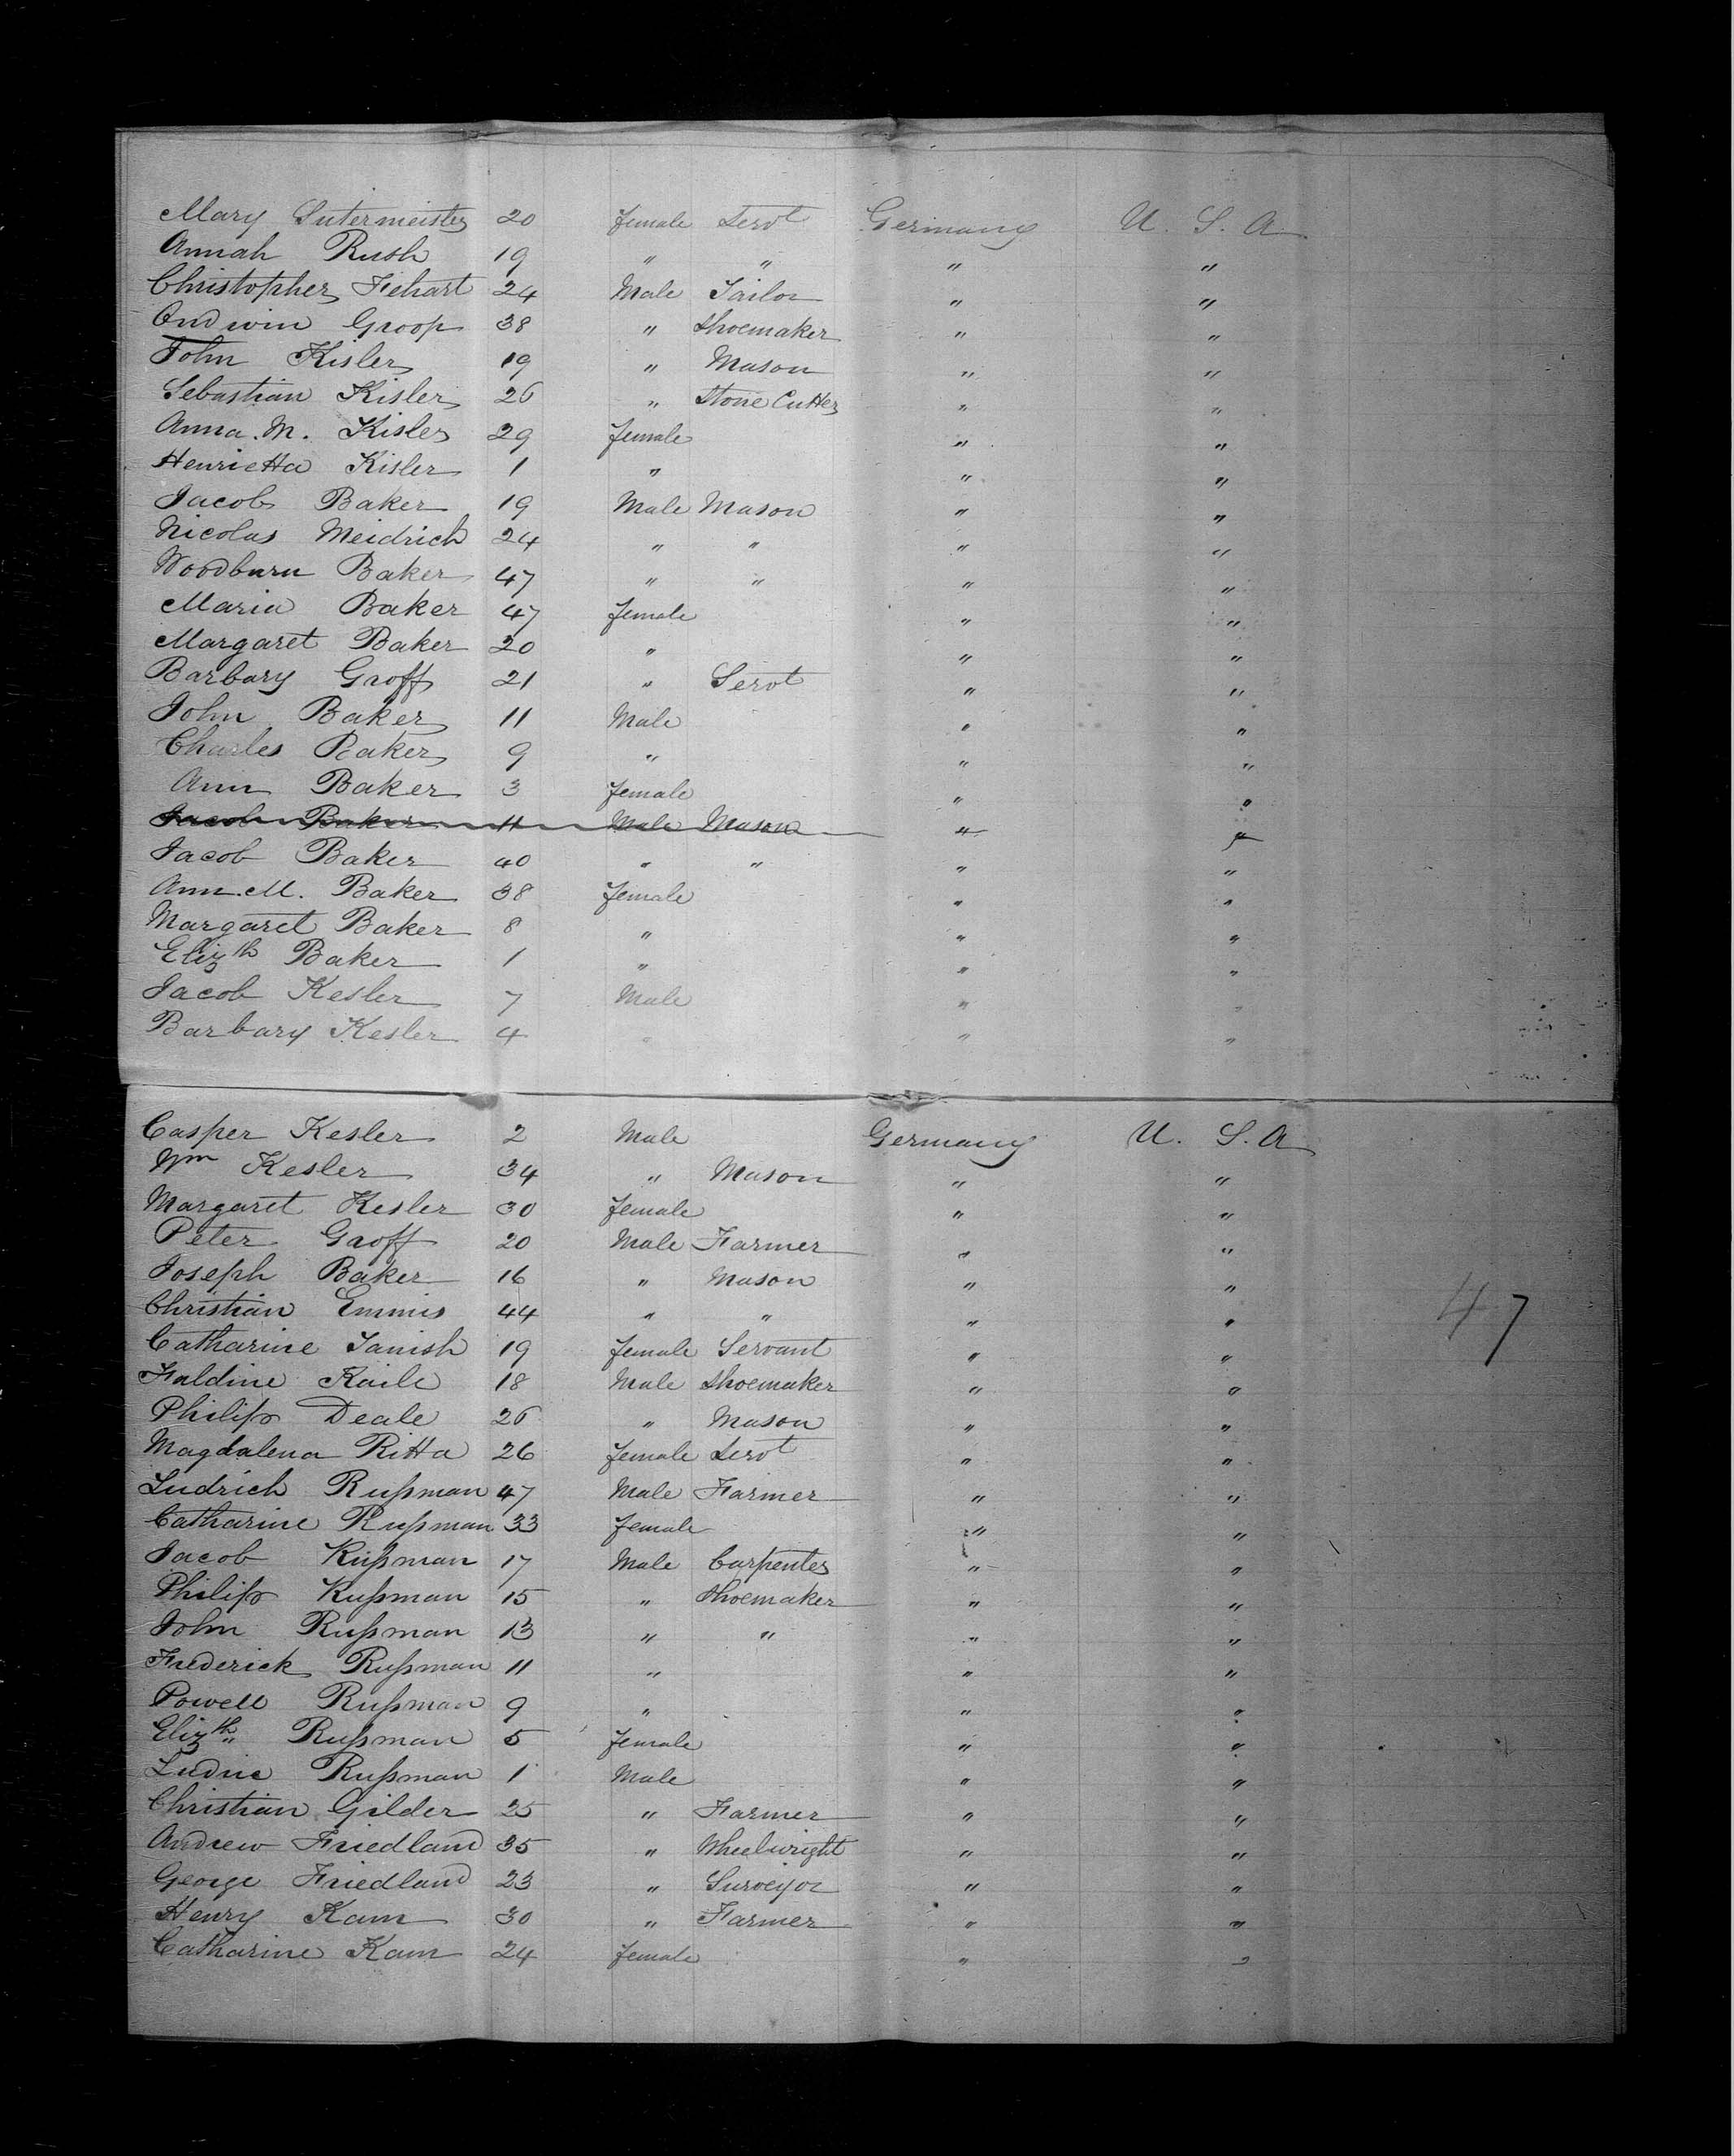 Mary Sutermeister 20 female Servt Germany U. S. A.
Annah Rush 19 " " " "
Christopher Fehart 24 Male Tailor " "
Andwin Groop 38 " Shoemaker " "
John Kisler 19 " Mason " "
Sebastian Kisler 26 " Stone Cutter " "
Anna. M. Kisler 29 female " "
Henrietta Kisler 1 " " "
Jacob Baker 19 Male Mason " "
Nicolas Meidrich 24 " " " "
Woodburn Baker 47 " " " "
Maria Baker 47 female " "
Margaret Baker 20 " " "
Barbary Groff 21 " Servt " "
John Baker 11 Male " "
Charles Baker 9 " " "
Ann Baker 3 female " "
Jacob Baker 11 Male Mason " "
Jacob Baker 40 " " " "
Ann. M. Baker 38 female " "
Margaret Baker 8 " " "
Elizth Baker 1 " " "
Jacob Kesler 7 Male " "
Barbary Kesler 4 " " "
Casper Kesler 2 Male Germany U. S. A
Wm Kesler 34 " Mason " "
Margaret Kesler 30 female " "
Peter Groff 20 Male Farmer " "
Joseph Baker 16 " Mason " "
Christian Emmis 44 " " " "
47
Catharine Janish 19 female Servant " "
Faldine Raile 18 Male Shoemaker " "
Philip Deale 26 " Mason " "
Magdalena Ritta 26 female Servt " "
Ludrich Rußman 47 Male Farmer " "
Catharine Rußman 33 female " "
Jacob Rußman 17 Male Carpenter " "
Philip Rußman 15 " Shoemaker " "
John Rußman 13 " " " "
Frederick Rußman 11 " " "
Powell Rußman 9 " " "
Elizth Rußman 5 female " "
Ludric Rußman 1 Male " "
Christian Gilder 25 " Farmer " "
Andrew Friedland 35 " Wheelwright " "
George Friedland 23 " Surveyor " "
Henry Kam 30 " Farmer " "
Catharine Kam 24 female " "